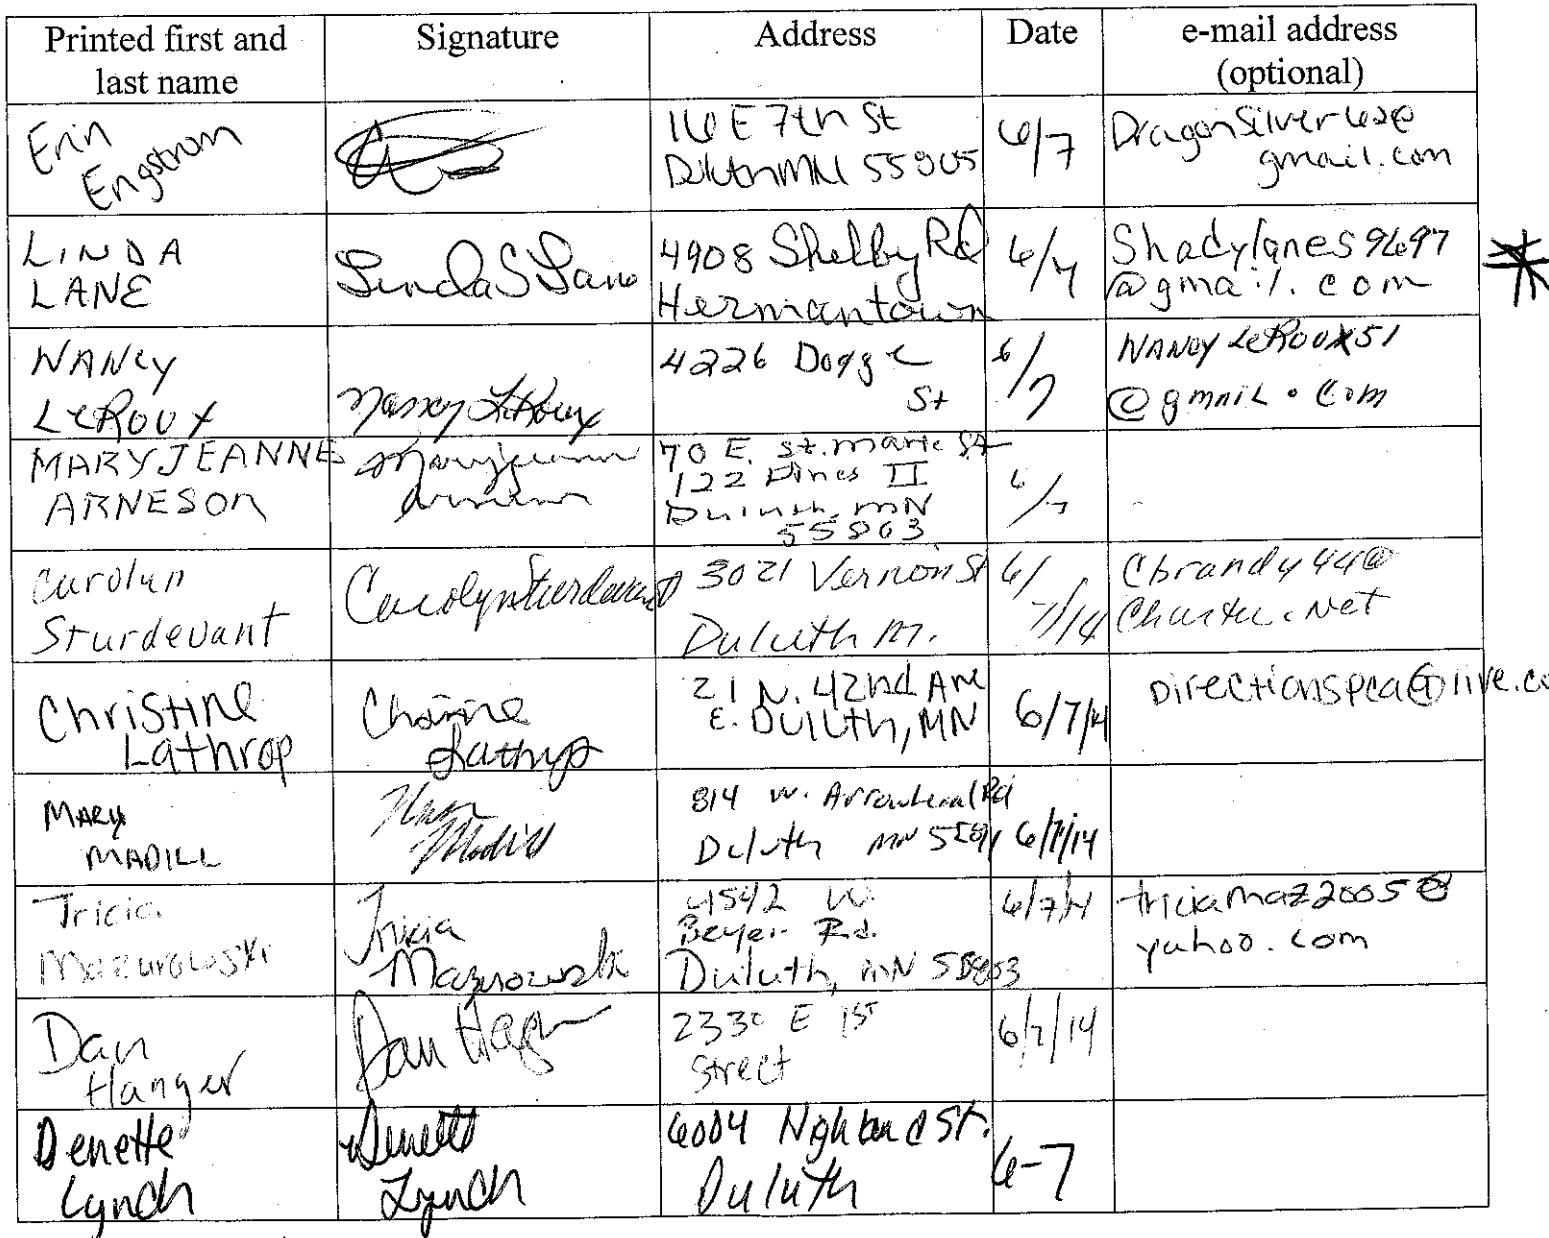 Printed first and
last name
Signature
Address
Date
e-mail address
(optional)
Erin
Engstrom
16 E 7th St
Duluth MN 55805
6/7
DragonSilver62@
gmail.com
LINDA
LANE
Linda S Lane
4908 Shelby Rd
Hermantown
6/7
Shadylanes9697
@gmail.com
NANCY
LeROUX
Nancy LeRoux
4226 Dodge
St
6/7
NANCY LeROUX51
@gmail.com
MARYJEANNE
ARNESON
Maryjeanne
Arneson
70 E. St. Marie St
122 Pines II
Duluth, MN
55803
6/7
Carolyn
Sturdevant
Carolyn Sturdevant
3021 Vernon St
Duluth M.
6/
7/14
Cbrandy44@
Charter.Net
Christine
Lathrop
Christine
Lathrop
21 N. 42nd Ave
E. Duluth, MN
6/7/14
Directionspca@live.co
MARY
MADILL
Mary
Madill
814 W. Arrowhead Rd
Duluth MN
6/7/14
Tricia
Mazurowski
Tricia
Mazurowski
4542 W.
Beyer Rd.
Duluth, MN 55803
6/7/14
triciamaz2005@
yahoo.com
Dan
Hanger
Dan Hanger
2330 E 1st
Street
6/7/14
Denette
Lynch
Denette
Lynch
6004 Highland St.
Duluth
6-7